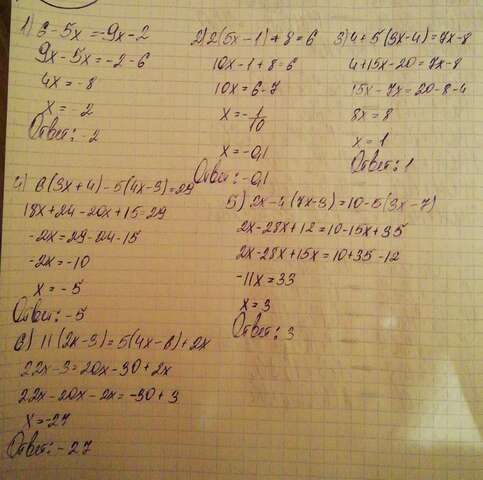 1) 6-5x=-9x-2
9x-5x=-2-6
4x=-8
x=-2
Ответ: -2
2) 2(5x-1)+8=6
10x-1+8=6
10x=6-7
x=-1/10
x=-0,1
Ответ: -0,1
3) 4+5(3x-4)=7x-8
4+15x-20=7x-8
15x-7x=20-8-4
8x=8
x=1
Ответ: 1
4) 6(3x+4)-5(4x-3)=29
18x+24-20x+15-29
-2x=29-24-15
-2x=-10
x=-5
Ответ: -5
5) 2x-4(7x-3)=10-5(3x-7)
2x-28x+12=10-15x+35
2x-28x+15x=10+35-12
-11x=33
x=3
Ответ: 3
6) 11(2x-3)=5(4x-6)+2x
22x-3=20x-30+2x
22x-20x-2x=-30+3
x=-27
Ответ: -27